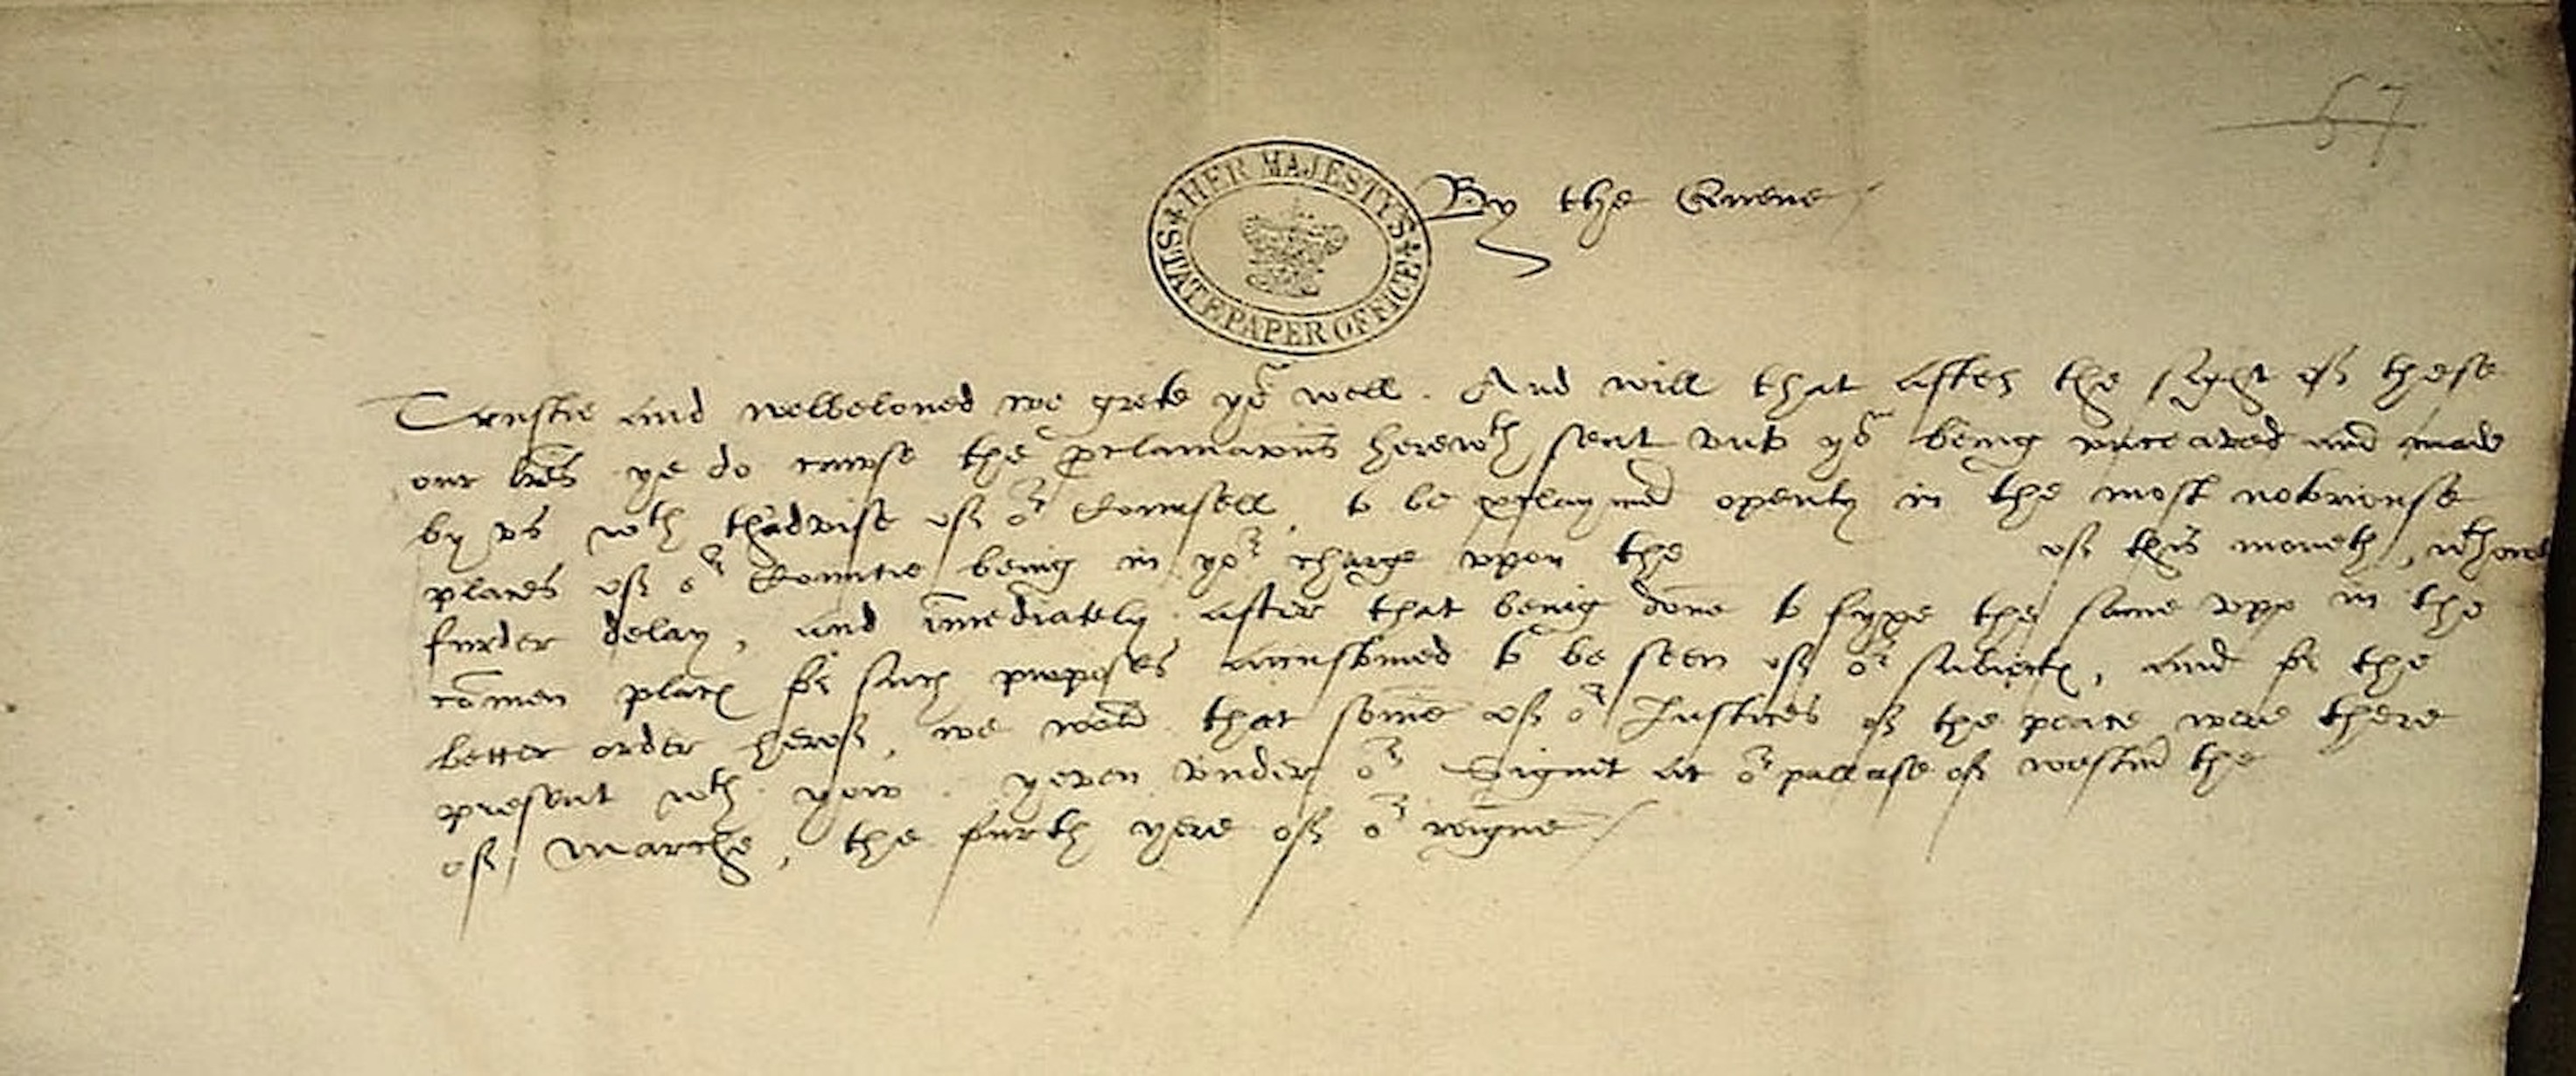 57
HER MAJESTY'S STATE PAPER OFFICE
By the Quene
Trustie and welbeloued we grete yoᵘ well. And will that after the sight of these
our lr̃es ye do cause the proclamac̃ons herewᵗʰ sent vnto yoᵘ being and made
by vs wᵗʰ thadvise of oʳ Counsell, to be proclaymed openly in the most notoriouse
places of oʳ Countie being in yoʳ charge vpon the of this moneth, wᵗʰout
furder delay, and im̃ediately after that being done to fyxe the same vpp in the
com̃en place for such purposes accustomed to be seen of oʳ subiectes, and for the
better order herof, we wold that some of oʳ Justices of the peace were there
present wᵗʰ yow. yeven vnder oʳ Signet at oʳ pallaise of westm̃ the
of Marche, the furth yere of oʳ reigne